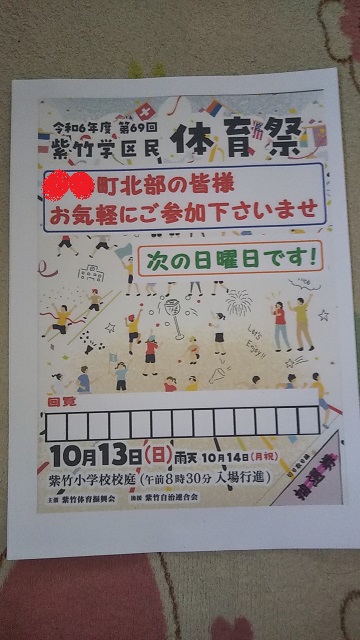 令和6年度 第69回
紫竹学区民 体育祭
町北部の皆様
お気軽にご参加下さいませ
次の日曜日です!
Let's
Enjoy!!
回覧
10月13日(日) 雨天 10月14日(月祝)
紫竹小学校校庭 (午前8時30分 入場行進)
主催 紫竹体育振興会 後援 紫竹自治連合会